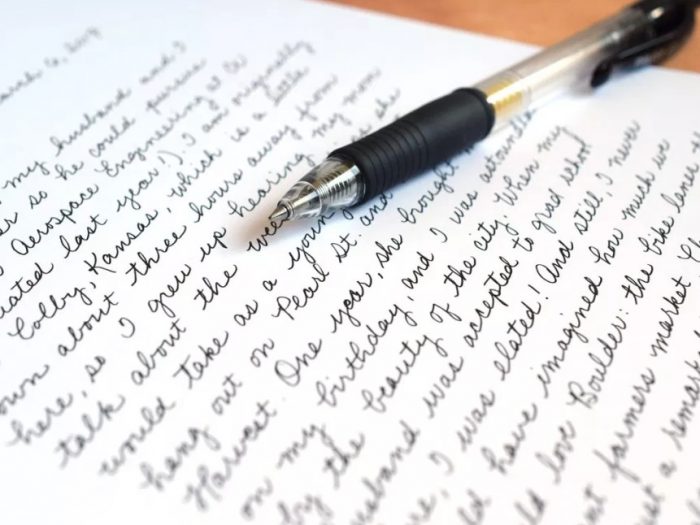 my husband and I
so he could pursue
Aerospace Engineering at CU
last year!). I am originally
Colby, Kansas, which is a little
about three hours away from
here, so I grew up hearing my mom
talk about the she
would take as a young
hang out on Pearl St. and
Harvest. One year, she brought
on my birthday, and I was
by the beauty of the city. When my
was accepted to grad school
I was elated! And still, I never
have imagined how much we
love Boulder: the bike lanes
farmers market
a